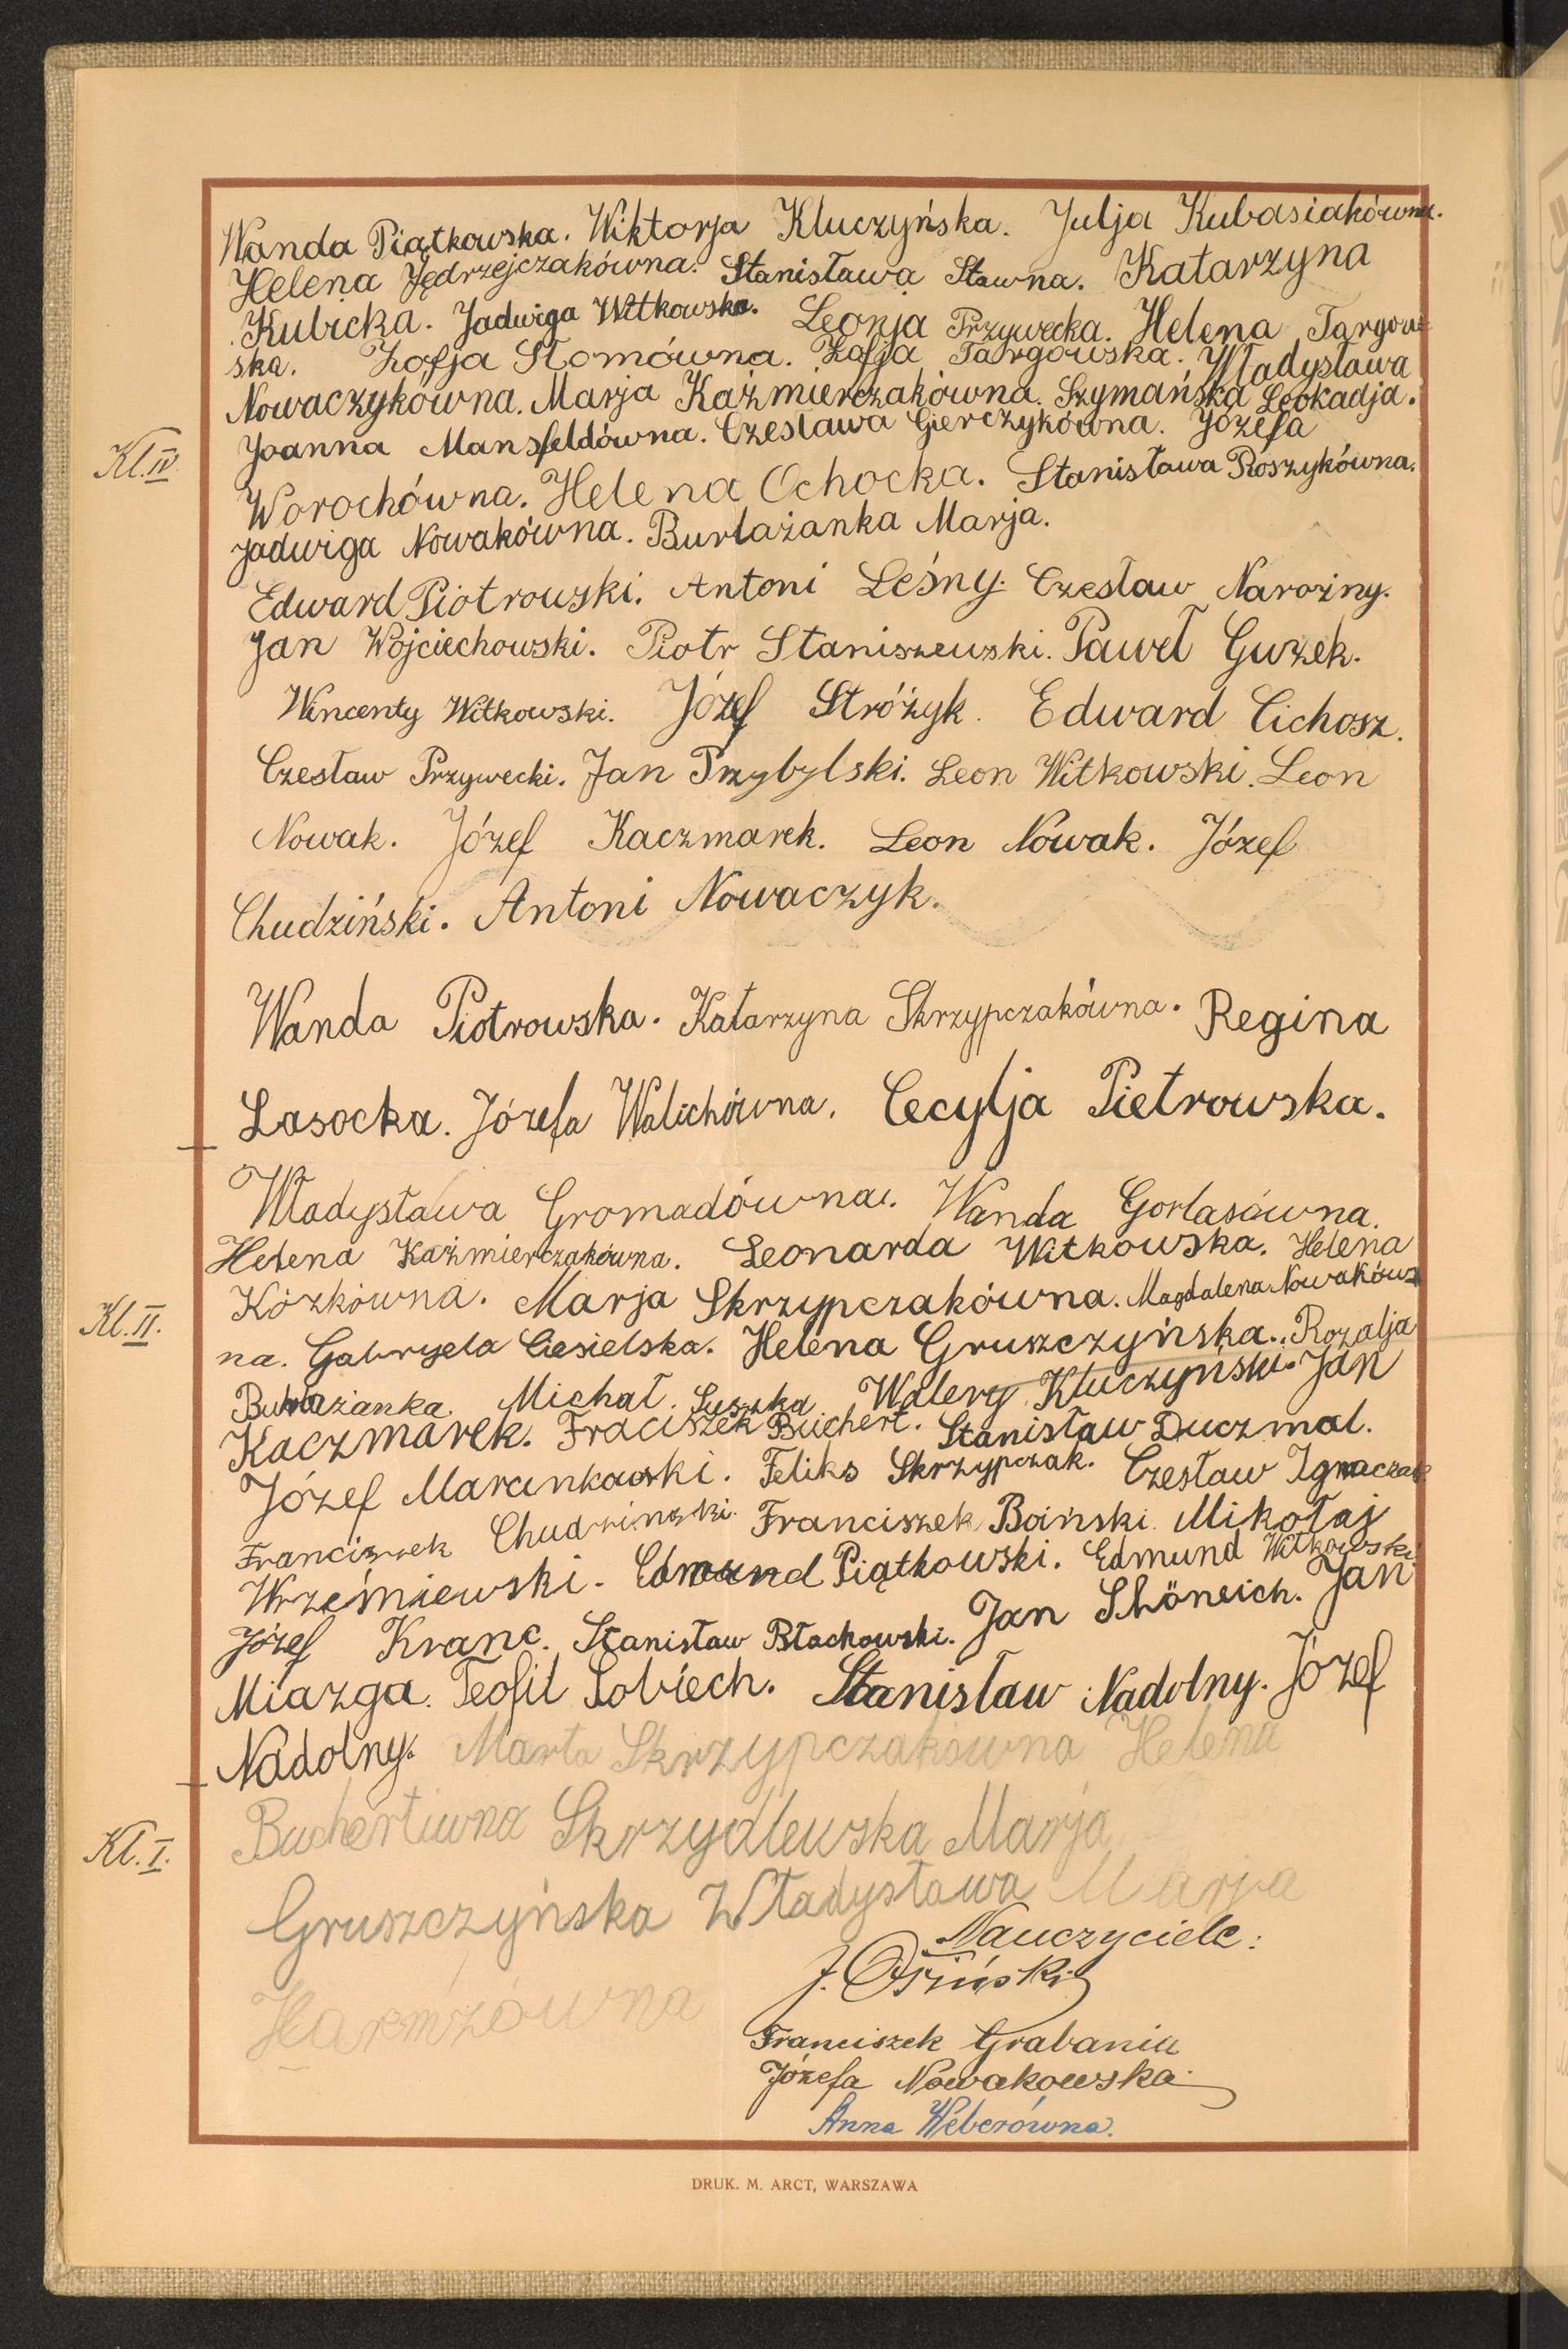 Wanda Piątkowska. Wiktorja Kluczyńska. Julja Kubasiakówna.
Helena Jędrzejczakówna. Stanisława Sławna. Katarzyna
Kubicka. Jadwiga Witkowska. Leonja Przywecka. Helena Targow-
ska. Zofja Słomówna. Zofja Targowska. Władysława
Nowaczykówna. Marja Kaźmierczakówna. Szymańska Leokadja.
Kl. IV
Joanna Mansfeldówna. Czesława Gierczykówna. Józefa
Worochówna. Helena Ochocka. Stanisława Roszykówna.
Jadwiga Nowakówna. Burlażanka Marja.
Edward Piotrowski. Antoni Leśny. Czesław Narożny.
Jan Wojciechowski. Piotr Staniszewski. Paweł Guzek.
Wincenty Witkowski. Józef Stróżyk. Edward Cichosz.
Czesław Przywecki. Jan Przybylski. Leon Witkowski. Leon
Nowak. Józef Kaczmarek. Leon Nowak. Józef
Chudziński. Antoni Nowaczyk.
Wanda Piotrowska. Katarzyna Skrzypczakówna. Regina
Lasocka. Józefa Walichówna. Cecylja Pietrowska.
Władysława Gromadówna. Wanda Gorlasówna.
Helena Kaźmierczakówna. Leonarda Witkowska. Helena
Kl. II.
Kózkówna. Marja Skrzypczakówna. Magdalena Nowaków
na. Gabryela Ciesielska. Helena Gruszczyńska. Rozalja
Michał Suszka Walery Kluczyński. Jan
Kaczmarek. Fraciszek Buchert. Stanisław Duczmal.
Józef Marcinkowski. Feliks Skrzypczak. Czesław Ignaczak
Franciszek Chudzinski. Franciszek Boiński. Mikołaj
Wrześniewski. Edmund Piątkowski. Edmund Witkowski.
Józef Kranc. Stanisław Błachowski. Jan Shöneich. Jan
Miazga. Teofil Sobiech. Stanisław Nadolny. Józef
Nadolny. Marta Skrzypczakówna Helena
Kl. I.
Buchertiwna Skrzydlewska Marja
Gruszczyńska Władysława Marja
Nauczyciele:
J. Osiński
Franciszek Grabania
Józefa Nowakowska
Anna Weberówna.
DRUK. M. ARCT, WARSZAWA